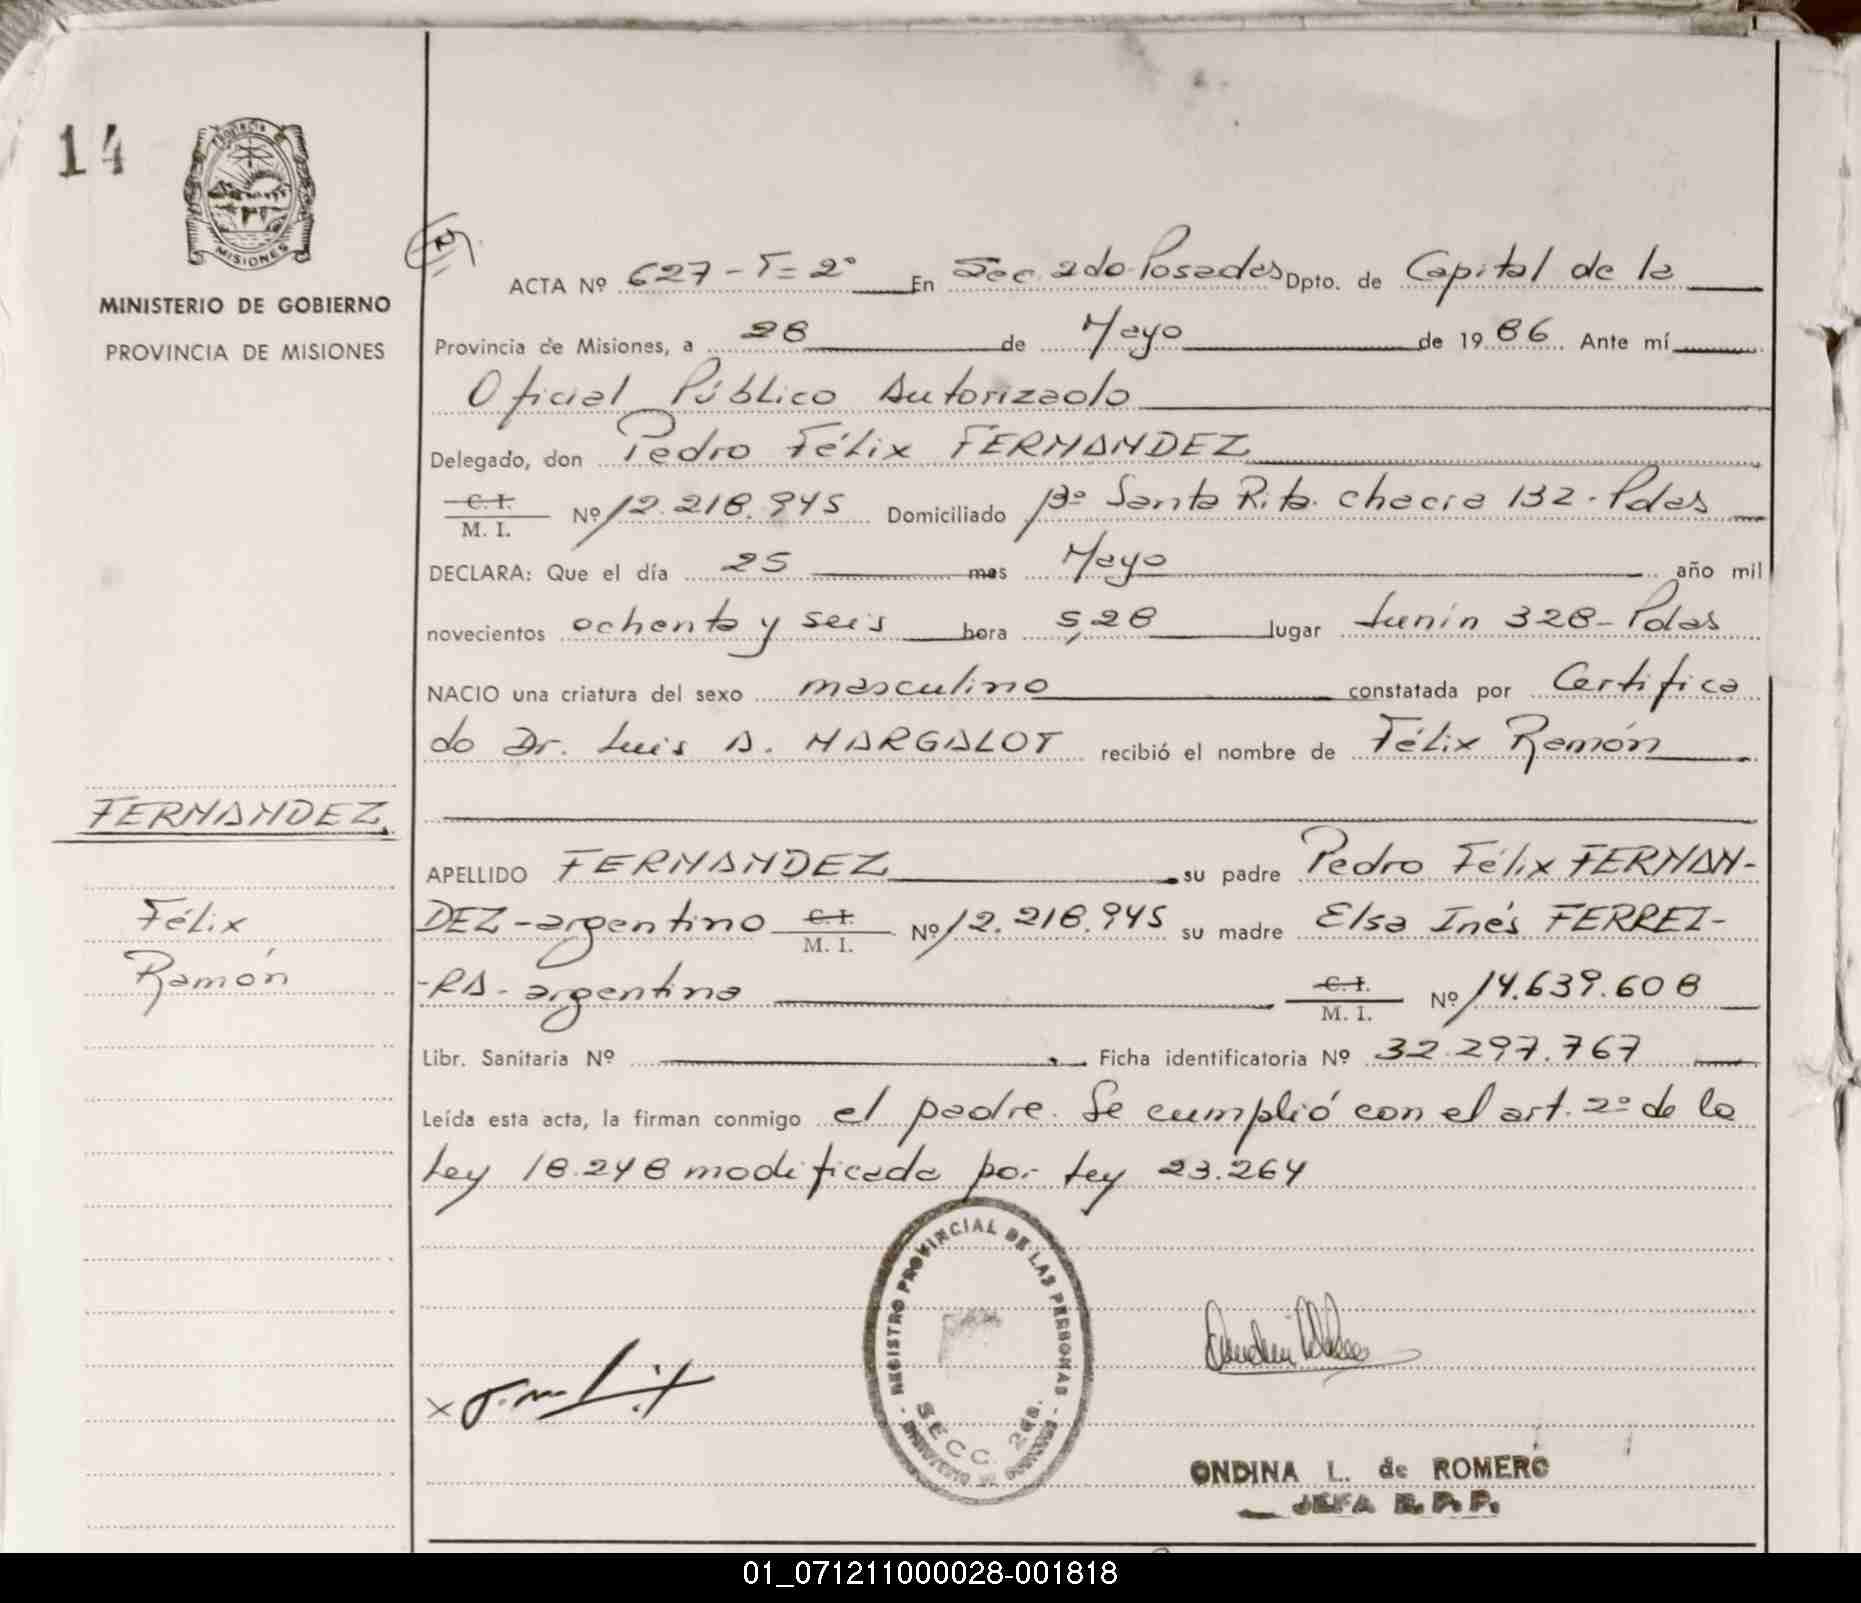 14
PROVINCIA
MISIONES
MINISTERIO DE GOBIERNO
PROVINCIA DE MISIONES
FERNANDEZ
Félix
Ramón
ACTA Nº 627 - T= 2º En Sec. 2da Posadas Dpto. de Capital de la
Provincia de Misiones, a 28 de Mayo de 1986 Ante mí
Oficial Público Autorizado
Delegado, don Pedro Félix FERNANDEZ
C. I.
M. I. Nº 12.218.945 Domiciliado Bº Santa Rita. chacra 132 - Pdas
DECLARA: Que el día 25 mes Mayo año mil
novecientos ochenta y seis hora 5,28 lugar Junín 328 - Pdas
NACIO una criatura del sexo masculino constatada por Certifica
do Dr. Luis A. MARGALOT recibió el nombre de Félix Ramón
APELLIDO FERNANDEZ su padre Pedro Félix FERNAN-
DEZ - argentino C. I. M. I. Nº 12.218.945 su madre Elsa Inés FERREI-
-RA - argentina C. I. M. I. Nº 14.639.608
Libr. Sanitaria Nº Ficha identificatoria Nº 32.297.767
Leída esta acta, la firman conmigo el padre. Se cumplió con el art. 2º de la
Ley 18.248 modificada por Ley 23.264
REGISTRO PROVINCIAL DE LAS PERSONAS
SECC. 2da.
ONDINA L. de ROMERO
JEFA R. P. P.
01_071211000028-001818